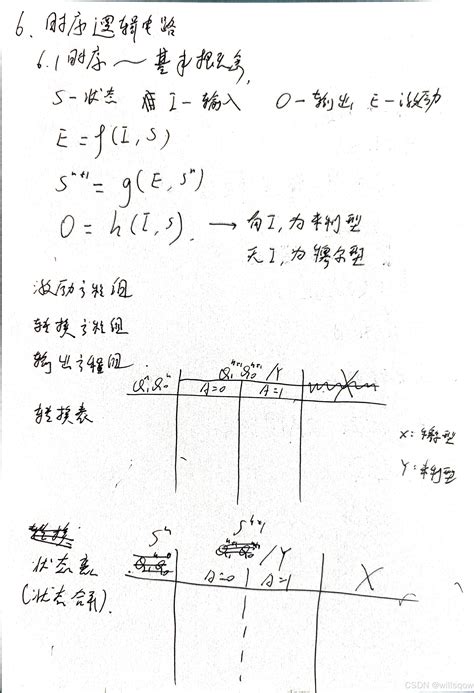 6. 时序逻辑电路
6.1 时序~基本概念
S-状态 I-输入 O-输出 E-激励
E = f(I, S)
Sⁿ⁺¹ = g(E, Sⁿ)
O = h(I, S). → 有I,为米利型
无I,为穆尔型
激励方程组
转换方程组
输出方程组
转换表
Q₁ⁿQ₀ⁿ Q₁ⁿ⁺¹Q₀ⁿ⁺¹/Y
A=0 A=1 X
X:穆尔型
Y:米利型
状态表
(状态合并).
Sⁿ Sⁿ⁺¹/Y
A=0 A=1 X
CSDN @willsqow